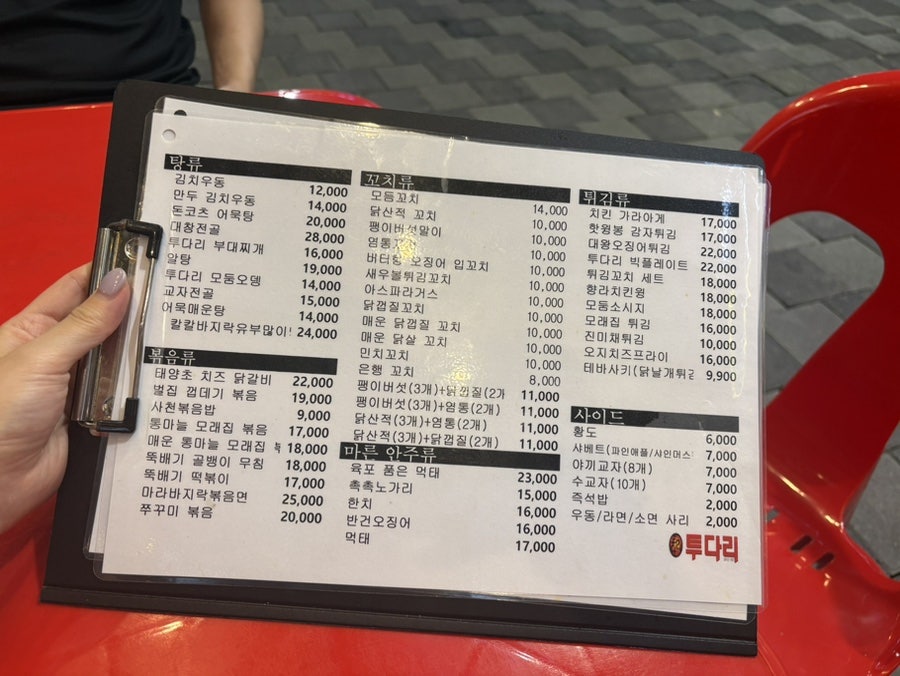 탕류
김치우동 12,000
만두 김치우동 14,000
돈코츠 어묵탕 20,000
대창전골 28,000
투다리 부대찌개 16,000
알탕 19,000
투다리 모둠오뎅 14,000
교자전골 15,000
어묵매운탕 14,000
칼칼바지락유부많이! 24,000
볶음류
태양초 치즈 닭갈비 22,000
벌집 껍데기 볶음 19,000
사천볶음밥 9,000
통마늘 모래집 볶음 17,000
매운 통마늘 모래집 18,000
뚝배기 골뱅이 무침 18,000
뚝배기 떡볶이 17,000
마라바지락볶음면 25,000
쭈꾸미 볶음 20,000
꼬치류
모듬꼬치 14,000
닭산적 꼬치 10,000
팽이버섯말이 10,000
10,000
버터향 오징어 입꼬치 10,000
새우볼튀김꼬치 10,000
아스파라거스 10,000
닭껍질꼬치 10,000
매운 닭껍질 꼬치 10,000
매운 닭살 꼬치 10,000
민치꼬치 10,000
은행 꼬치 8,000
팽이버섯(3개)+닭껍질(2개 11,000
팽이버섯(3개)+염통(2개) 11,000
닭산적(3개)+염통(2개) 11,000
닭산적(3개)+닭껍질(2개) 11,000
마른 안주류
육포 품은 먹태 23,000
촉촉노가리 15,000
한치 16,000
반건오징어 16,000
먹태 17,000
튀김류
치킨 가라아게 17,000
핫윙봉 감자튀김 17,000
대왕오징어튀김 22,000
투다리 빅플레이트 22,000
튀김꼬치 세트 18,000
향라치킨윙 18,000
모둠소시지 18,000
모래집 튀김 16,000
진미채튀김 10,000
오지치즈프라이 16,000
테바사키(닭날개튀김 9,900
사이드
황도 6,000
샤베트(파인애플/샤인머스 7,000
야끼교자(8개) 7,000
수교자(10개) 7,000
즉석밥 2,000
우동/라면/소면 사리 2,000
투다리